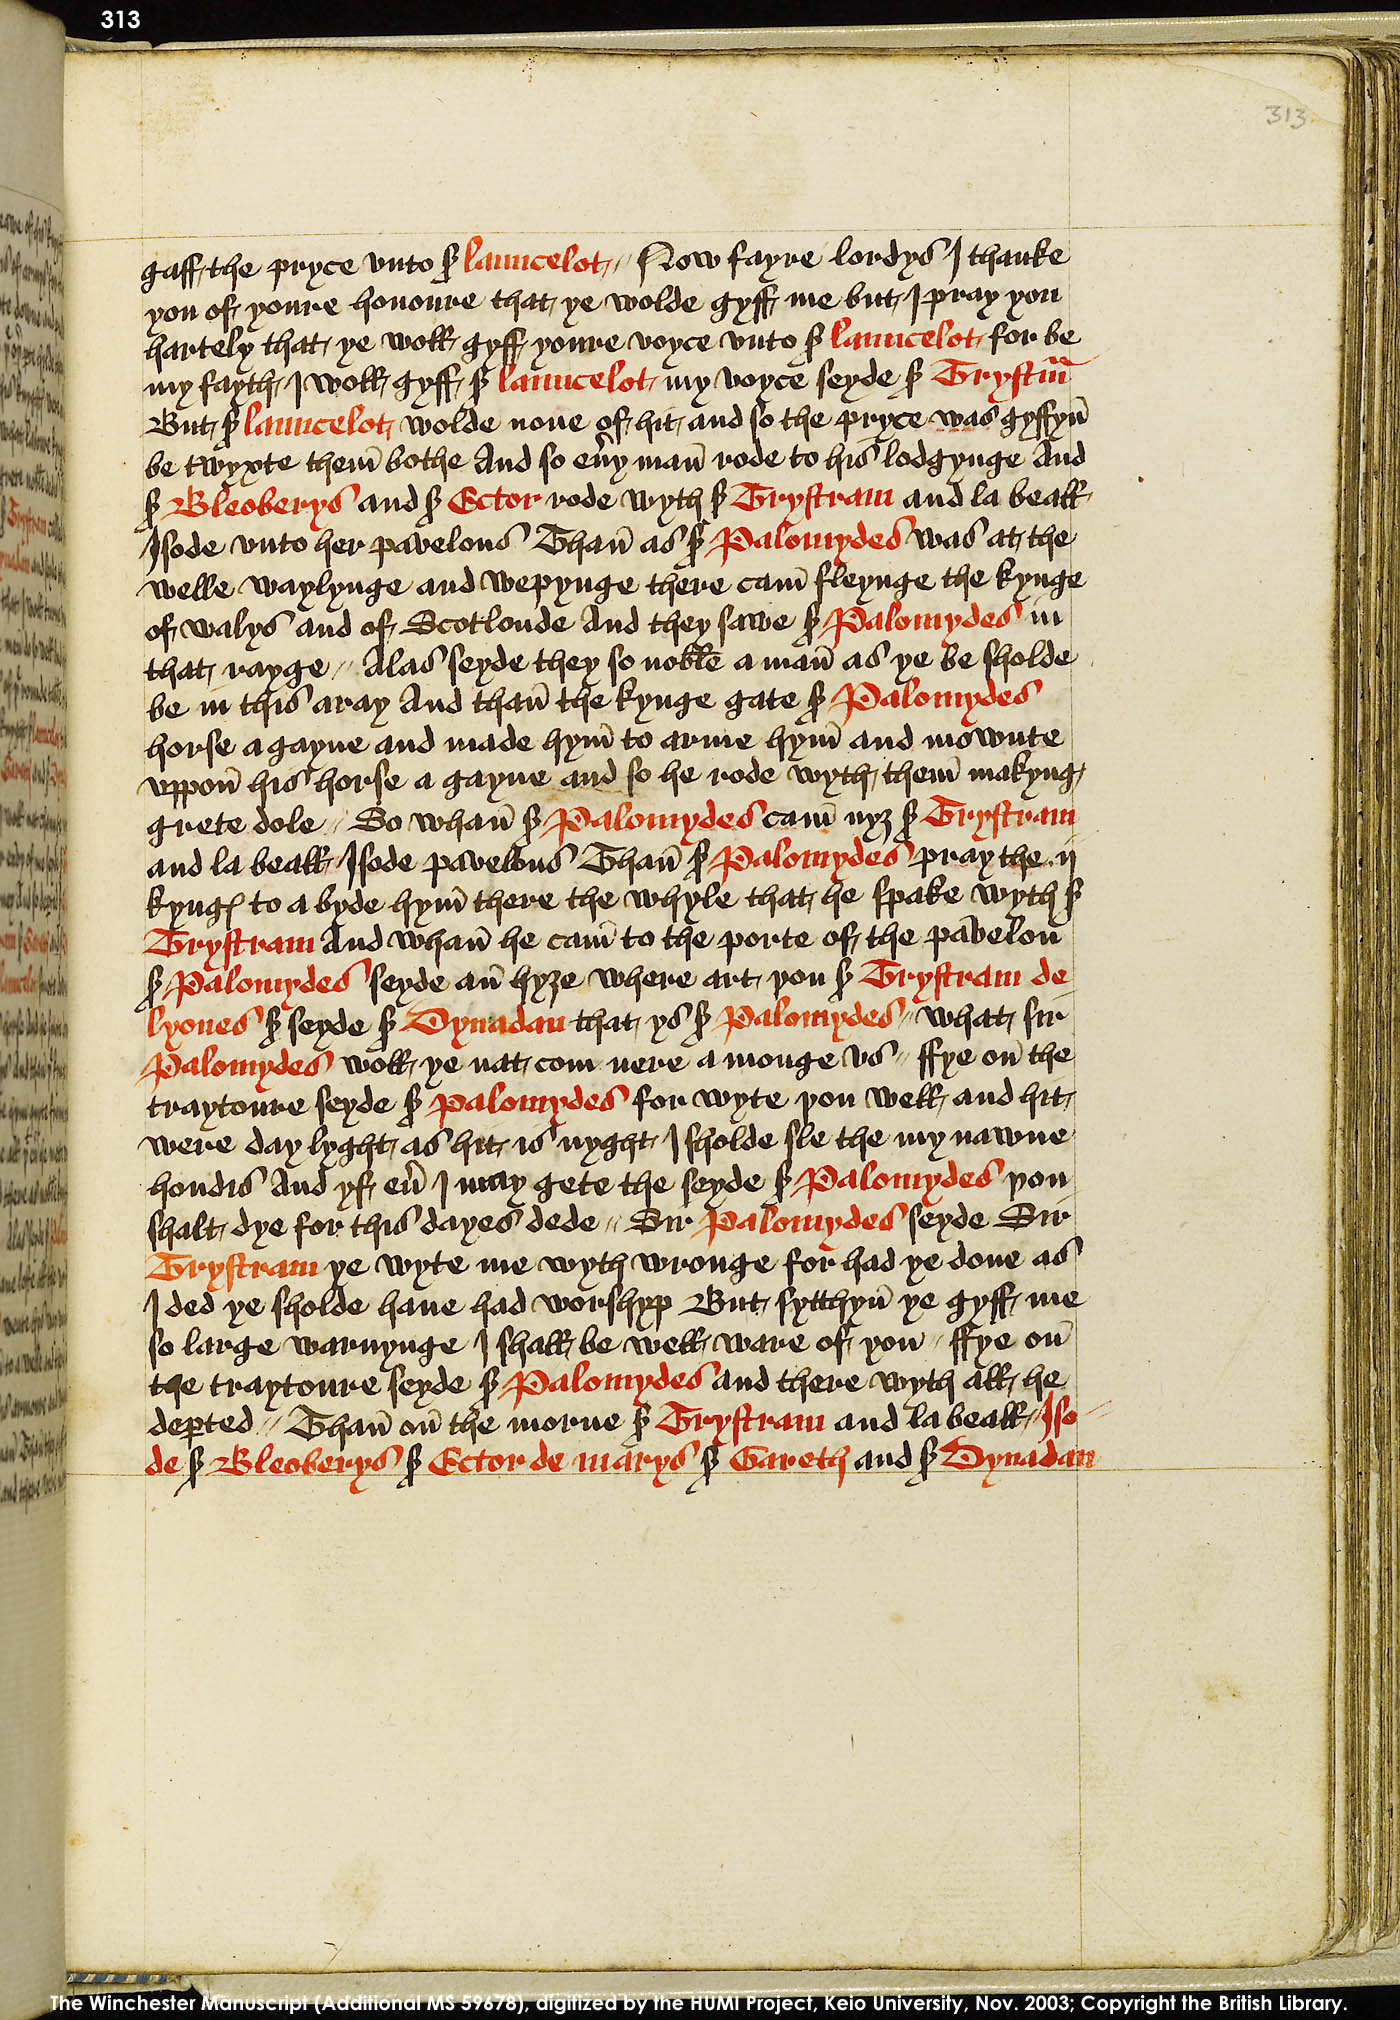 313
313
gaff the pryce vnto sͬ launcelot // Now fayre lordys I thanke
you of youre honoure that ye wolde gyff me but I pray you
hartely that ye woll gyff youre voyce vnto sͬ launcelot for be
my fayth I woll gyff sͬ launcelot my voyce seyde sͬ Trystm̄
But sͬ launcelot wolde none of hit and so the pryce was gyffyn̄
be twyxte them̄ bothe And so eu͛y man̄ rode to his lodgynge And
sͬ Bleoberys and sͬ Ector rode wyth sͬ Trystram and la beall
Isode vnto her pavelons Than̄ as sͬ Palomydes was at the
welle waylynge and wepynge there cam̄ fleynge the kynge
of walys and of Scotlonde And they sawe sͬ Palomydes in
that rayge // Alas seyde they so noble a man̄ as ye be sholde
be in this aray And than̄ the kynge gate sͬ Palomydes
horse agayne and made hym̄ to arme hym̄ and mownte
vppon̄ his horse a gayne and so he rode wyth them̄ makyng
grete dole // So whan̄ sͬ Palomydes cam̄ nyȝ sͬ Trystram
and la beall Isode pavelons Than̄ sͬ Palomydes pray the .ij
kyngꝭ to a byde hym̄ there the whyle that he spake wyth sͬ
Trystram And whan̄ he cam̄ to the porte of the pavelon
sͬ Palomydes seyde an̄ hyȝe where art you sͬ Trystram de
lyones sͬ seyde sͬ Dynadan that ys sͬ Palomydes // what sir
Palomydes woll ye nat com nere a monge vs // ffye on̄ the
traytoure seyde sͬ palomydes for wyte you well and hit
were day lyght as hit is nyght I sholde sle the my nawne
hondis And yf eu͛ I may gete the seyde sͬ Palomydes you
shalt dye for this dayes dede // Sir Palomydes seyde Sir
Trystram ye wyte me wyth wronge for had ye done as
I ded ye sholde haue had worshyp But sytthyn̄ ye gyff me
so large warnynge I shall be well ware of you // ffye on̄
the traytoure seyde sͬ Palomydes and there wyth all he
deꝑted // Than̄ on̄ the morne sͬ Trystram and la beall Iso
de sͬ Bleoberys sͬ Ector de marys sͬ Gareth and sͬ Dynadan
The Winchester Manuscript (Additional MS 59678), digitized by the HUMI Project, Keio University, Nov. 2003; Copyright the British Library.